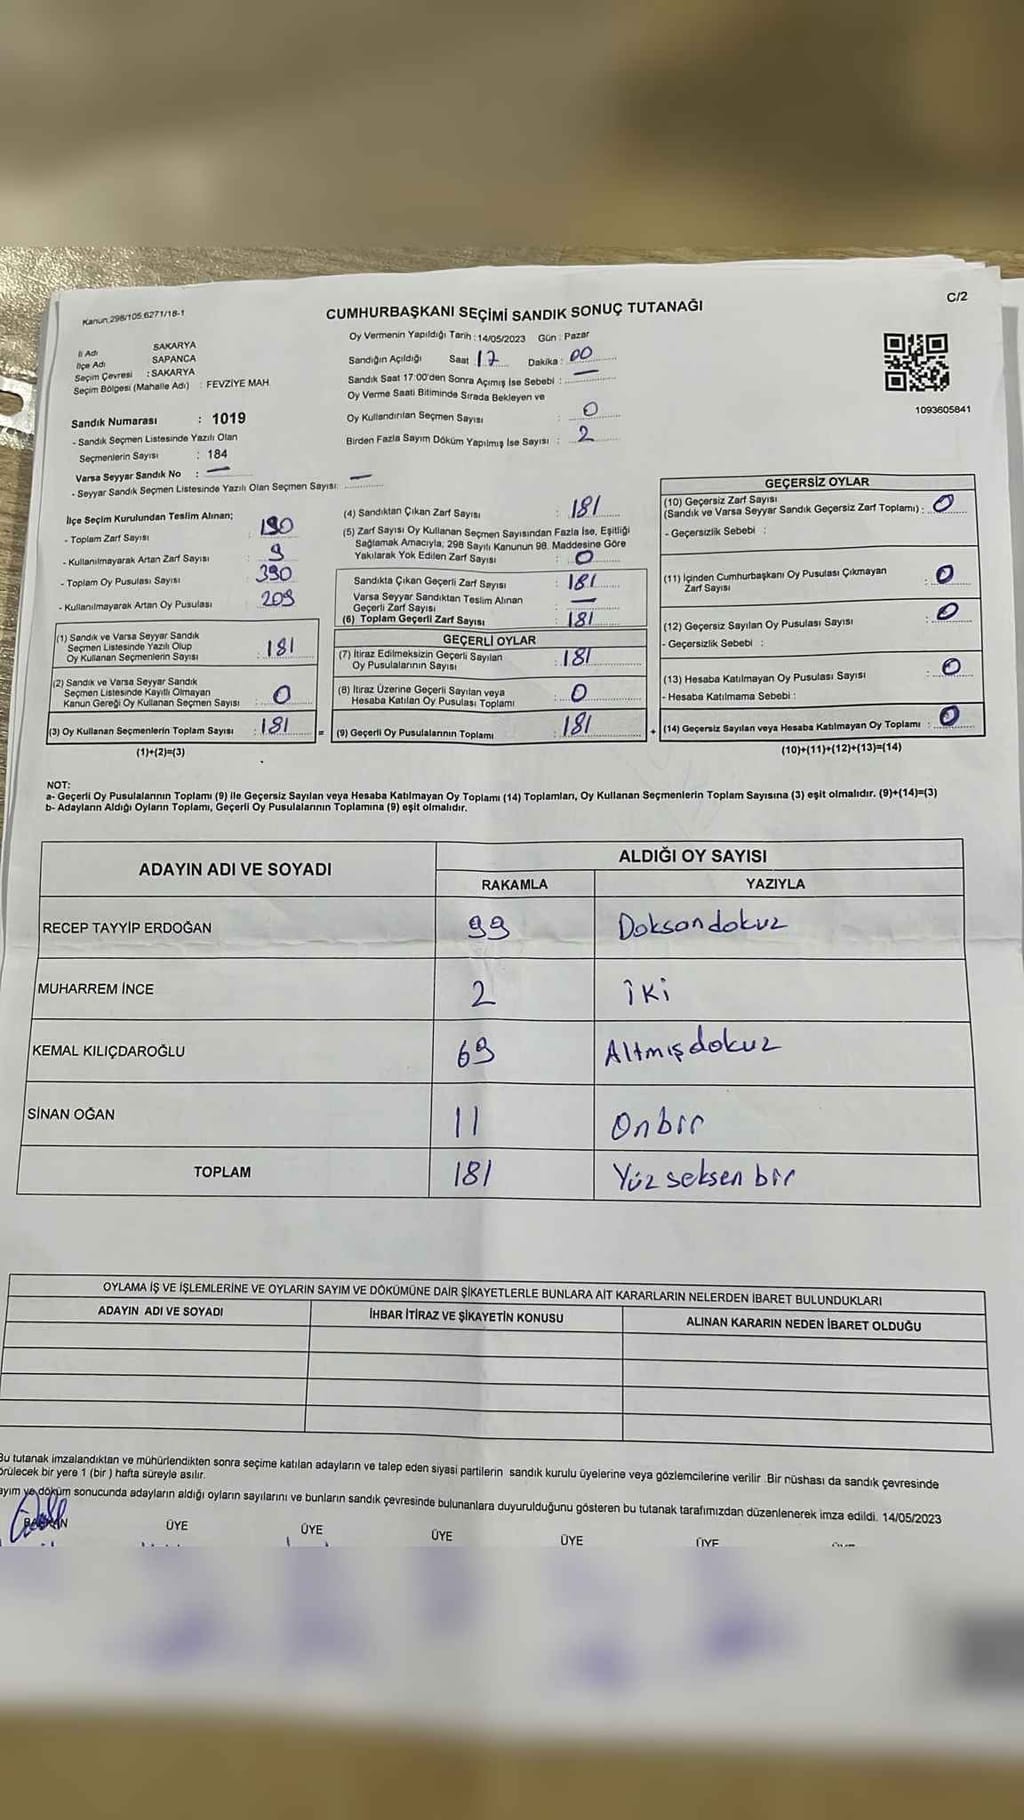 C/2
Kanun.298/105.6271/18-1
CUMHURBAŞKANI SEÇİMİ SANDIK SONUÇ TUTANAĞI
İl Adı SAKARYA
İlçe Adı SAPANCA
Seçim Çevresi : SAKARYA
Seçim Bölgesi (Mahalle Adı) : FEVZİYE MAH
Sandık Numarası : 1019
- Sandık Seçmen Listesinde Yazılı Olan
Seçmenlerin Sayısı : 184
Varsa Seyyar Sandık No : —
- Seyyar Sandık Seçmen Listesinde Yazılı Olan Seçmen Sayısı: —
Oy Vermenin Yapıldığı Tarih : 14/05/2023 Gün : Pazar
Sandığın Açıldığı Saat 17 Dakika : 00
Sandık Saat 17:00'den Sonra Açımış İse Sebebi : —
Oy Verme Saati Bitiminde Sırada Bekleyen ve
Oy Kullandırılan Seçmen Sayısı : 0
Birden Fazla Sayım Döküm Yapılmış İse Sayısı : 2
1093605841
İlçe Seçim Kurulundan Teslim Alınan;
- Toplam Zarf Sayısı : 190
- Kullanılmayarak Artan Zarf Sayısı : 9
- Toplam Oy Pusulası Sayısı : 390
- Kullanılmayarak Artan Oy Pusulası : 209
(1) Sandık ve Varsa Seyyar Sandık
Seçmen Listesinde Yazılı Olup
Oy Kullanan Seçmenlerin Sayısı : 181
(2) Sandık ve Varsa Seyyar Sandık
Seçmen Listesinde Kayıtlı Olmayan
Kanun Gereği Oy Kullanan Seçmen Sayısı : 0
(3) Oy Kullanan Seçmenlerin Toplam Sayısı : 181
(1)+(2)=(3)
(4) Sandıktan Çıkan Zarf Sayısı : 181
(5) Zarf Sayısı Oy Kullanan Seçmen Sayısından Fazla İse, Eşitliği
Sağlamak Amacıyla, 298 Sayılı Kanunun 98. Maddesine Göre
Yakılarak Yok Edilen Zarf Sayısı : 0
Sandıkta Çıkan Geçerli Zarf Sayısı : 181
Varsa Seyyar Sandıktan Teslim Alınan
Geçerli Zarf Sayısı : —
(6) Toplam Geçerli Zarf Sayısı : 181
GEÇERLİ OYLAR
(7) İtiraz Edilmeksizin Geçerli Sayılan
Oy Pusulalarının Sayısı : 181
(8) İtiraz Üzerine Geçerli Sayılan veya
Hesaba Katılan Oy Pusulası Toplamı : 0
= (9) Geçerli Oy Pusulalarının Toplamı : 181
GEÇERSİZ OYLAR
(10) Geçersiz Zarf Sayısı
(Sandık ve Varsa Seyyar Sandık Geçersiz Zarf Toplamı) : 0
- Geçersizlik Sebebi :
(11) İçinden Cumhurbaşkanı Oy Pusulası Çıkmayan
Zarf Sayısı : 0
(12) Geçersiz Sayılan Oy Pusulası Sayısı : 0
- Geçersizlik Sebebi :
(13) Hesaba Katılmayan Oy Pusulası Sayısı : 0
- Hesaba Katılmama Sebebi :
+ (14) Geçersiz Sayılan veya Hesaba Katılmayan Oy Toplamı : 0
(10)+(11)+(12)+(13)=(14)
NOT:
a- Geçerli Oy Pusulalarının Toplamı (9) ile Geçersiz Sayılan veya Hesaba Katılmayan Oy Toplamı (14) Toplamları, Oy Kullanan Seçmenlerin Toplam Sayısına (3) eşit olmalıdır. (9)+(14)=(3)
b- Adayların Aldığı Oyların Toplamı, Geçerli Oy Pusulalarının Toplamına (9) eşit olmalıdır.
ADAYIN ADI VE SOYADI ALDIĞI OY SAYISI
RAKAMLA YAZIYLA
RECEP TAYYİP ERDOĞAN 99 Doksandokuz
MUHARREM İNCE 2 İki
KEMAL KILIÇDAROĞLU 69 Altmışdokuz
SİNAN OĞAN 11 Onbir
TOPLAM 181 Yüz seksen bir
OYLAMA İŞ VE İŞLEMLERİNE VE OYLARIN SAYIM VE DÖKÜMÜNE DAİR ŞİKAYETLERLE BUNLARA AİT KARARLARIN NELERDEN İBARET BULUNDUKLARI
ADAYIN ADI VE SOYADI İHBAR İTİRAZ VE ŞİKAYETİN KONUSU ALINAN KARARIN NEDEN İBARET OLDUĞU
Bu tutanak imzalandıktan ve mühürlendikten sonra seçime katılan adayların ve talep eden siyasi partilerin sandık kurulu üyelerine veya gözlemcilerine verilir. Bir nüshası da sandık çevresinde
örülecek bir yere 1 (bir ) hafta süreyle asılır.
ayım ve döküm sonucunda adayların aldığı oyların sayılarını ve bunların sandık çevresinde bulunanlara duyurulduğunu gösteren bu tutanak tarafımızdan düzenlenerek imza edildi. 14/05/2023
ÜYE ÜYE ÜYE ÜYE ÜYE